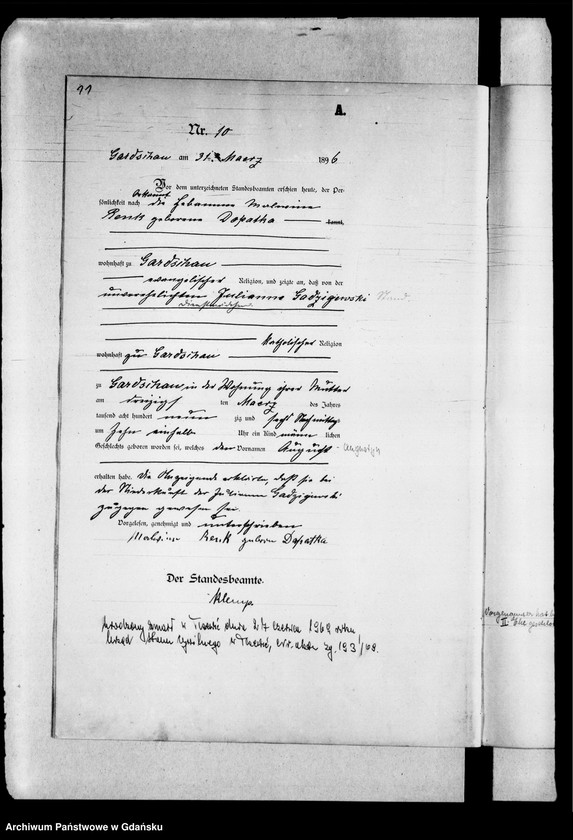 11
A.
Nr. 10
Gardschau am 31. Maerz 1896
Vor dem unterzeichneten Standesbeamten erschien heute, der Per-
sönlichkeit nach bekannt die Hebamme Malwine
Renk geborene Dopatka kannt,
wohnhaft zu Gardschau
evangelischer Religion, und zeigte an, daß von der
unverehelichten Julianna Gadzigewski
Katholischer Religion
wohnhaft zu Gardschau
zu Gardschau in der Wohnung ihrer Mutter
am dreizigst ten Maerz des Jahres
tausend acht hundert neun zig und sechs Nachmittags
um zehn einhalb Uhr ein Kind männ lichen
Geschlechts geboren worden sei, welches den Vornamen August
erhalten habe. Die Anzeigende erklärte, daß sie bei
der Niederkunft der Julianna Gadzigewski
zugegen gewesen sei.
Vorgelesen, genehmigt und unterschrieben
Malwine Renk geborene Dopatka
Der Standesbeamte.
1969
Urząd Stanu Cywilnego w 193/69.
Vorgenannter hat
II. Ehe
Archiwum Państwowe w Gdańsku